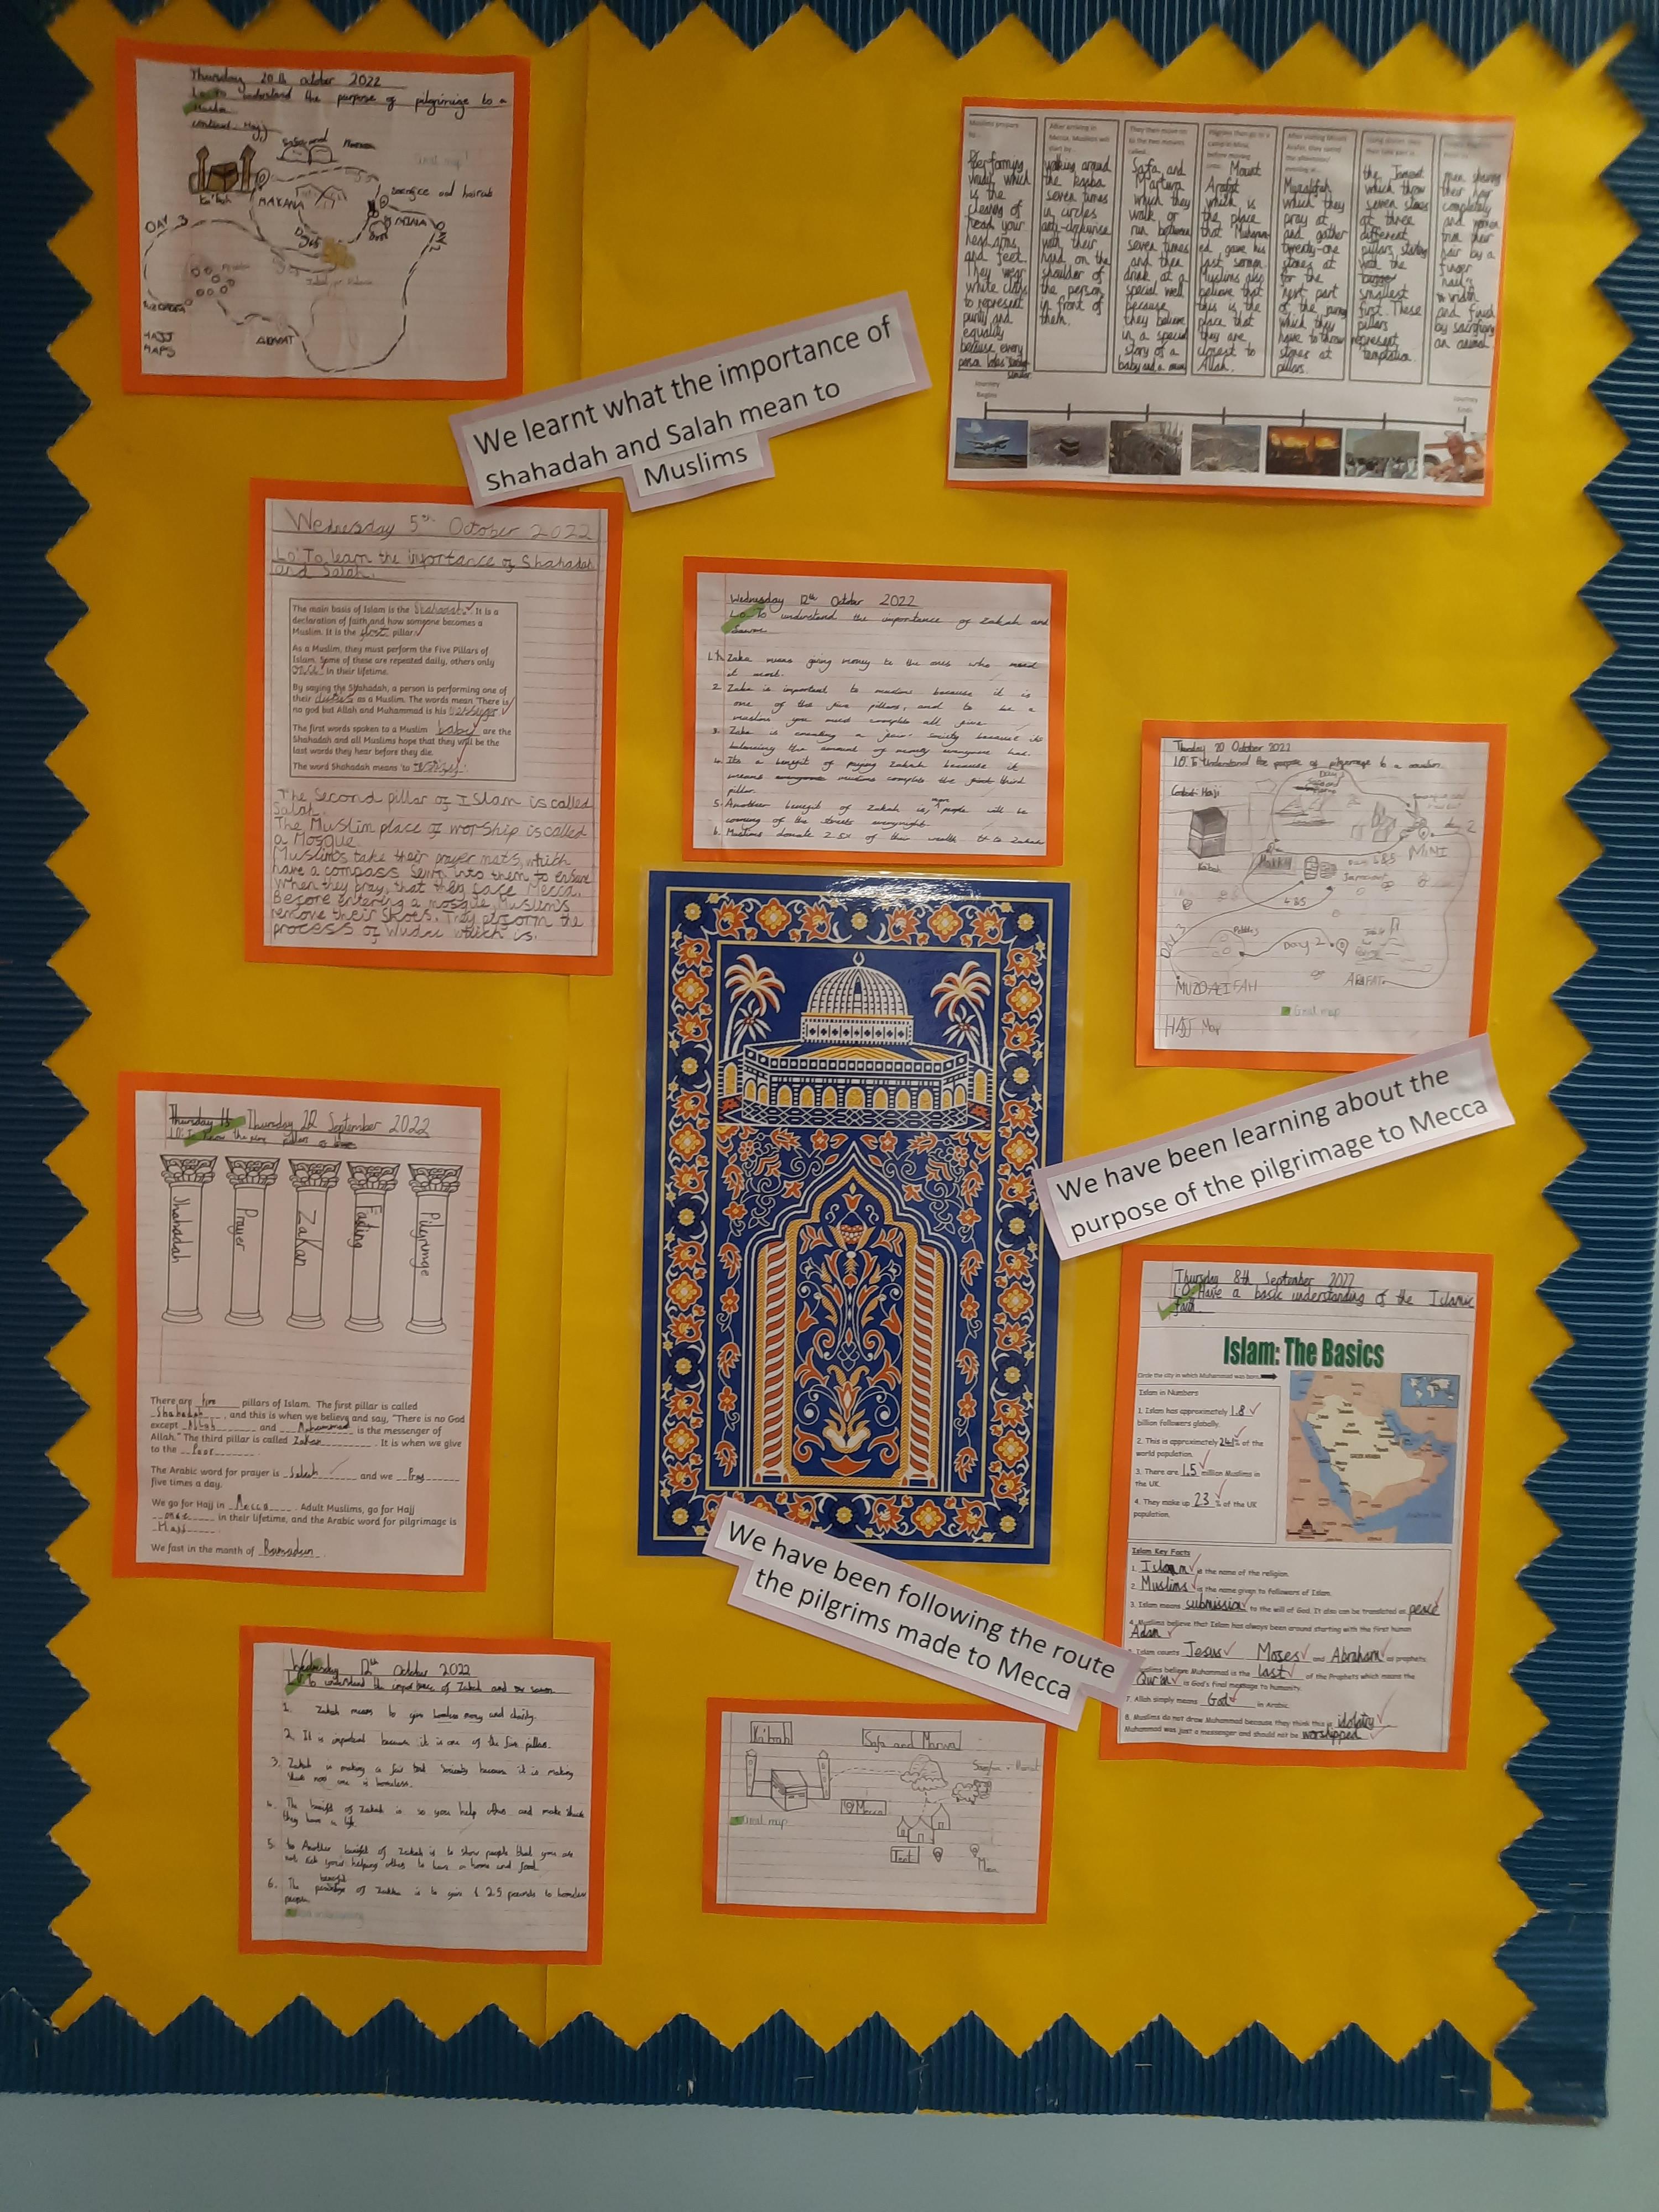 Thursday 20th October 2022
Lo To understand the purpose of pilgrimige to a
Ka'bah
MAKAHA
Sacrafice and haircut
MINA
DAY 2
DAY 3
HAJJ
MAPS
Muslims prepare
performing
wudu which
is the
cleaning of
head your
head, arms,
and feet.
They wear
white cloths
to represent
purity and
equality
because every
person looks
similar.
After arriving in
Mecca, Muslims will
start by...
walking around
the kaaba
seven times
in circles
anti-clockwise
with their
hand on the
shoulder of
the person
in front of
them.
They then move on
to the two mounts
called...
Safa and
Marwa
which they
walk or
run between
seven times
and then
drink at a
special well
because
they believe
in a special
story of a
baby and a mum
Pilgrims then go to a
camp in Mina,
before moving
Mount
Arafat
which is
the place
that Muhamm
ed gave his
last sermon.
Muslims also
believe that
this is the
place that
they are
closest to
Allah.
After visiting Mount
Arafat, they spend
Muzdalifah
which they
pray at
and gather
twenty-one
stones at
for the
next part
of the
which they
have to throw
stones at
pillars.
the Jamarat
which throw
seven stones
at three
different
pillars starting
with the
smallest
first. These
pillars
represent
temptation.
men shaving
their hair
completely
and women
trim their
hair by a
finger
nail's
width
and finish
by sacrificing
an animal.
Journey
Begins
Journey
Ends
We learnt what the importance of
Shahadah and Salah mean to
Muslims
Wednesday 5th October 2022
Lo: To learn the importance of Shahadah
and Salah.
The main basis of Islam is the Shahadah. It is a
declaration of faith and how someone becomes a
Muslim. It is the first pillar.
As a Muslim, they must perform the Five Pillars of
Islam. Some of these are repeated daily, others only
once in their lifetime.
By saying the Shahadah, a person is performing one of
their duties as a Muslim. The words mean 'There is
no god but Allah and Muhammad is his
The first words spoken to a Muslim baby are the
Shahadah and all Muslims hope that they will be the
last words they hear before they die.
The word Shahadah means 'to
The Second pillar of Islam is called
Salah.
The Muslim place of worship is called
a Mosque
Muslims take their prayer mats, which
have a compass sewn into them to ensure
when they pray, that they face Mecca.
Before entering a mosque, Muslims
remove their shoes. They perform the
process of Wudu which is.
Wednesday 12th October 2022
Lo To understand the importance of Zakah and
Sawm
1. Zaka means giving money to the ones who need
it most.
2. Zaka is important to muslims because it is
one of the five pillars, and to be a
muslim you must complete all five
3. Zaka is creating a fair society because its
balancing the amount of money everyone has.
4. Its a benefit of paying Zakah because it
means muslims complete the third
pillar.
5. Another benefit of Zakah is, more people will be
coming of the streets overnight.
6. Muslims donate 2.5% of their wealth to Zakah
Thursday 20 October 2022
LO: To Understand the purpose of pilgrimage to a muslim.
Context: Hajj
Kabah
MINI
Day 4&5
Jamarat
4&5
DAY 3
Pebbles
Day 2
MUZDALIFAH
ARAFAT
HAJJ Map
Great map
We have been learning about the
purpose of the pilgrimage to Mecca
Thursday 22 September 2022
Shahadah
Prayer
Zakah
Fasting
Pilgrimge
There are five pillars of Islam. The first pillar is called
Shahadah, and this is when we believe and say, "There is no God
except Allah and Muhammad is the messenger of
Allah." The third pillar is called Zakah. It is when we give
to the Poor
The Arabic word for prayer is Salah and we Pray
five times a day.
We go for Hajj in Mecca. Adult Muslims, go for Hajj
once in their lifetime, and the Arabic word for pilgrimage is
Hajj
We fast in the month of Ramadan.
Thursday 8th September 2022
LO: Have a basic understanding of the Islamic
faith
Islam: The Basics
Circle the city in which Muhammad was born.
Islam in Numbers
1. Islam has approximately 1.8
billion followers globally.
2. This is approximately 24% of the
world population.
3. There are 1.5 million Muslims in
the UK.
4. They make up 23 % of the UK
population.
SAUDI ARABIA
Islam Key Facts
1. Islam is the name of the religion.
2. Muslims is the name given to followers of Islam.
3. Islam means submission to the will of God. It also can be translated as peace
4. Muslims believe that Islam has always been around starting with the first human
Adam
Islam counts Jesus Moses and Abraham as prophets.
Muslims believe Muhammad is the last of the Prophets which means the
Qur'an is God's final message to humanity.
7. Allah simply means God in Arabic.
8. Muslims do not draw Muhammad because they think this is idolatry
Muhammad was just a messenger and should not be worshipped
We have been following the route
the pilgrims made to Mecca
Wednesday 12th October 2022
LO To understand the importance of Zakah and sawm
1. Zakah means to give money and charity.
2. It is important because it is one of the five pillars.
3. Zakah is making a fair society because it is making
no one is homeless.
4. The benifit of Zakah is so you help others and make
they have a life
5. Another benifit of Zakah is to show people that you are
not rich your helping others to have a home and food.
6. The benefit of Zakah is to give £ 2.5 pounds to homeless
people.
Ka'bah
Safa and Marwa
Mecca
Great map
Tent